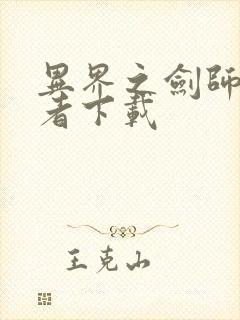 異界之劍師
者下載
王克山